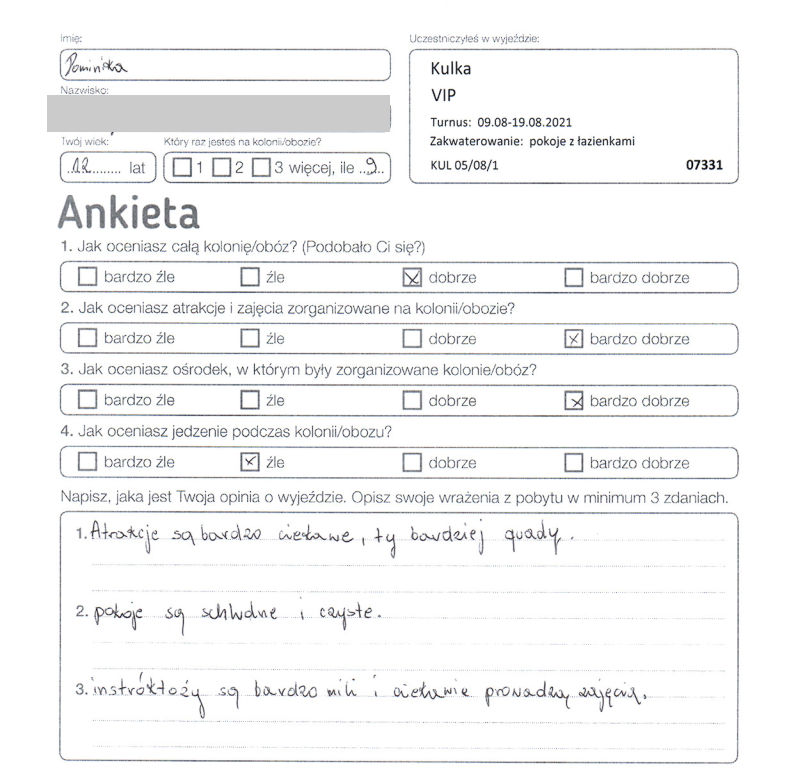 Imię:
Dominika
Nazwisko:
Twój wiek:
Który raz jesteś na kolonii/obozie?
12 lat
1 2 3 więcej, ile 9
Uczestniczyłeś w wyjeździe:
Kulka
VIP
Turnus: 09.08-19.08.2021
Zakwaterowanie: pokoje z łazienkami
KUL 05/08/1 07331
Ankieta
1. Jak oceniasz całą kolonię/obóz? (Podobało Ci się?)
bardzo źle źle dobrze bardzo dobrze
2. Jak oceniasz atrakcje i zajęcia zorganizowane na kolonii/obozie?
bardzo źle źle dobrze bardzo dobrze
3. Jak oceniasz ośrodek, w którym były zorganizowane kolonie/obóz?
bardzo źle źle dobrze bardzo dobrze
4. Jak oceniasz jedzenie podczas kolonii/obozu?
bardzo źle źle dobrze bardzo dobrze
Napisz, jaka jest Twoja opinia o wyjeździe. Opisz swoje wrażenia z pobytu w minimum 3 zdaniach.
1. Atrakcje są bardzo ciekawe, ty bardziej quady.
2. pokoje są schludne i czyste.
3. instróktoży są bardzo mili i ciekawie prowadzą zajęcia.